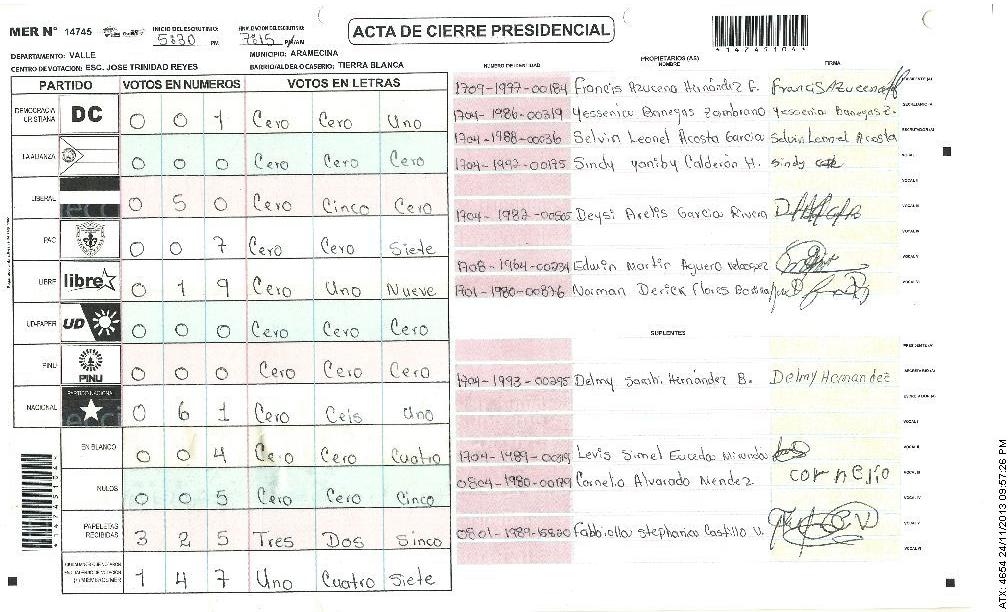 MER N° 14745
INICIO DEL ESCRUTINIO: 5:30 PM
FINALIZACION DEL ESCRUTINIO: 7:15 PM/AM
ACTA DE CIERRE PRESIDENCIAL
DEPARTAMENTO: VALLE
MUNICIPIO: ARAMECINA
CENTRO DE VOTACION: ESC. JOSE TRINIDAD REYES
BARRIO/ALDEA/CASERIO: TIERRA BLANCA
PARTIDO VOTOS EN NUMEROS VOTOS EN LETRAS
DEMOCRACIA CRISTIANA DC 0 0 1 Cero Cero Uno
LA ALIANZA 0 0 0 Cero Cero Cero
LIBERAL 0 5 0 Cero Cinco Cero
PAC 0 0 7 Cero Cero Siete
LIBRE libre 0 1 9 Cero Uno Nueve
UD-FAPER UD 0 0 0 Cero Cero Cero
PINU PINU 0 0 0 Cero Cero Cero
NACIONAL PARTIDO NACIONAL 0 6 1 Cero Ceis Uno
EN BLANCO 0 0 4 Cero Cero Cuatro
NULOS 0 0 5 Cero Cero Cinco
PAPELETAS RECIBIDAS 3 2 5 Tres Dos Sinco
1 4 7 Uno Cuatro Siete
NUMERO DE IDENTIDAD PROPIETARIOS (AS) NOMBRE FIRMA
1709-1997-00184 Francis Azucena Hernández G. Francis Azucena PRESIDENTE (A)
1704-1986-00319 Yessenia Banegas Zambrano Yessenia Banegas Z. SECRETARIO (A)
1704-1988-00036 Selvin Leonel Acosta Garcia Selvin Leonel Acosta ESCRUTADOR (A)
1704-1992-00175 Sindy Yoniby Calderón H. Sindy VOCAL I
VOCAL II
1704-1982-00505 Deysi Arelis Garcia Rivera VOCAL III
VOCAL IV
1708-1964-00234 Edwin Martir Aguero Velasquez VOCAL V
1701-1980-00876 Norman Derick Flores VOCAL VI
SUPLENTES
PRESIDENTE (A)
1704-1993-00295 Delmy Sarahi Hernández B. Delmy Hernandez SECRETARIO (A)
ESCRUTADOR (A)
VOCAL I
1704-1989-00319 Levis Simel Euceda Miranda VOCAL II
0804-1980-00179 Cornelio Alvarado Mendez cornelio VOCAL III
VOCAL IV
0801-1989-15820 Fabbiolla Stephania Castillo V. VOCAL V
VOCAL VI
ATX: 4654 24/11/2013 09:57:26 PM